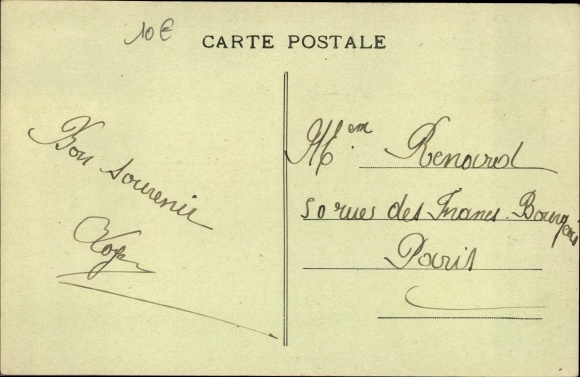 10€
CARTE POSTALE
Bon souvenir
Mem. Renard
50 rues des Francs. Bourgeois
Paris